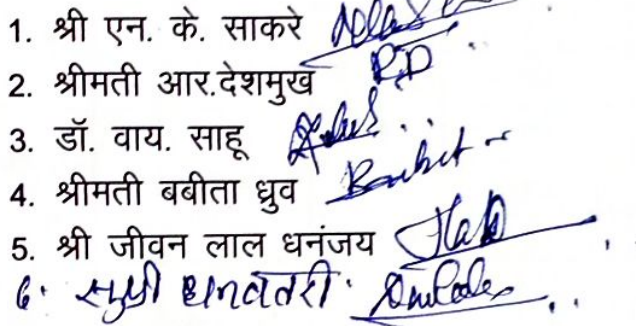 1. श्री एन. के. साकरे
2. श्रीमती आर.देशमुख RD
3. डॉ. वाय. साहू
4. श्रीमती बबीता ध्रुव
5. श्री जीवन लाल धनंजय
6. सुश्री धनवंतरी